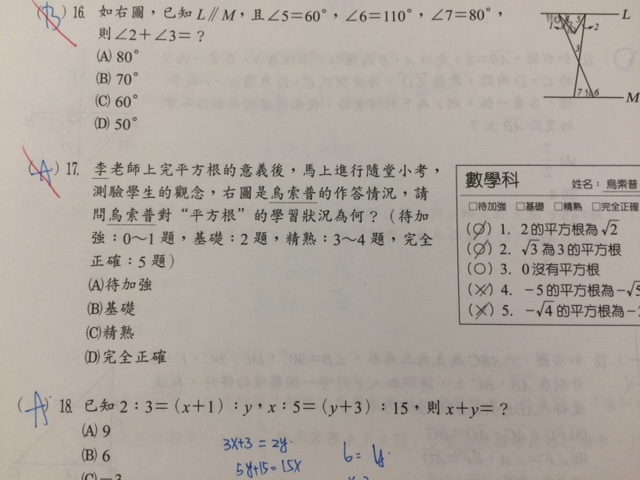 (B) 16. 如右圖，已知L∥M，且∠5=60°，∠6=110°，∠7=80°，
則∠2+∠3=？
(A) 80°
(B) 70°
(C) 60°
(D) 50°
L
M
(A) 17. 李老師上完平方根的意義後，馬上進行隨堂小考，
測驗學生的觀念，右圖是烏索普的作答情況，請
問烏索普對“平方根”的學習狀況為何？（待加
強：0～1題，基礎：2題，精熟：3～4題，完全
正確：5題）
(A)待加強
(B)基礎
(C)精熟
(D)完全正確
數學科 姓名：烏索普
□待加強 □基礎 □精熟 □完全正確
1. 2的平方根為√2
2. √3為3的平方根
(○) 3. 0沒有平方根
(×) 4. －5的平方根為－√5
(×) 5. －√4的平方根為－
(A) 18. 已知2：3=(x+1)：y，x：5=(y+3)：15，則x+y=？
(A) 9
(B) 6
(C)－3
3x+3=2y
5y+15=15x
6=y